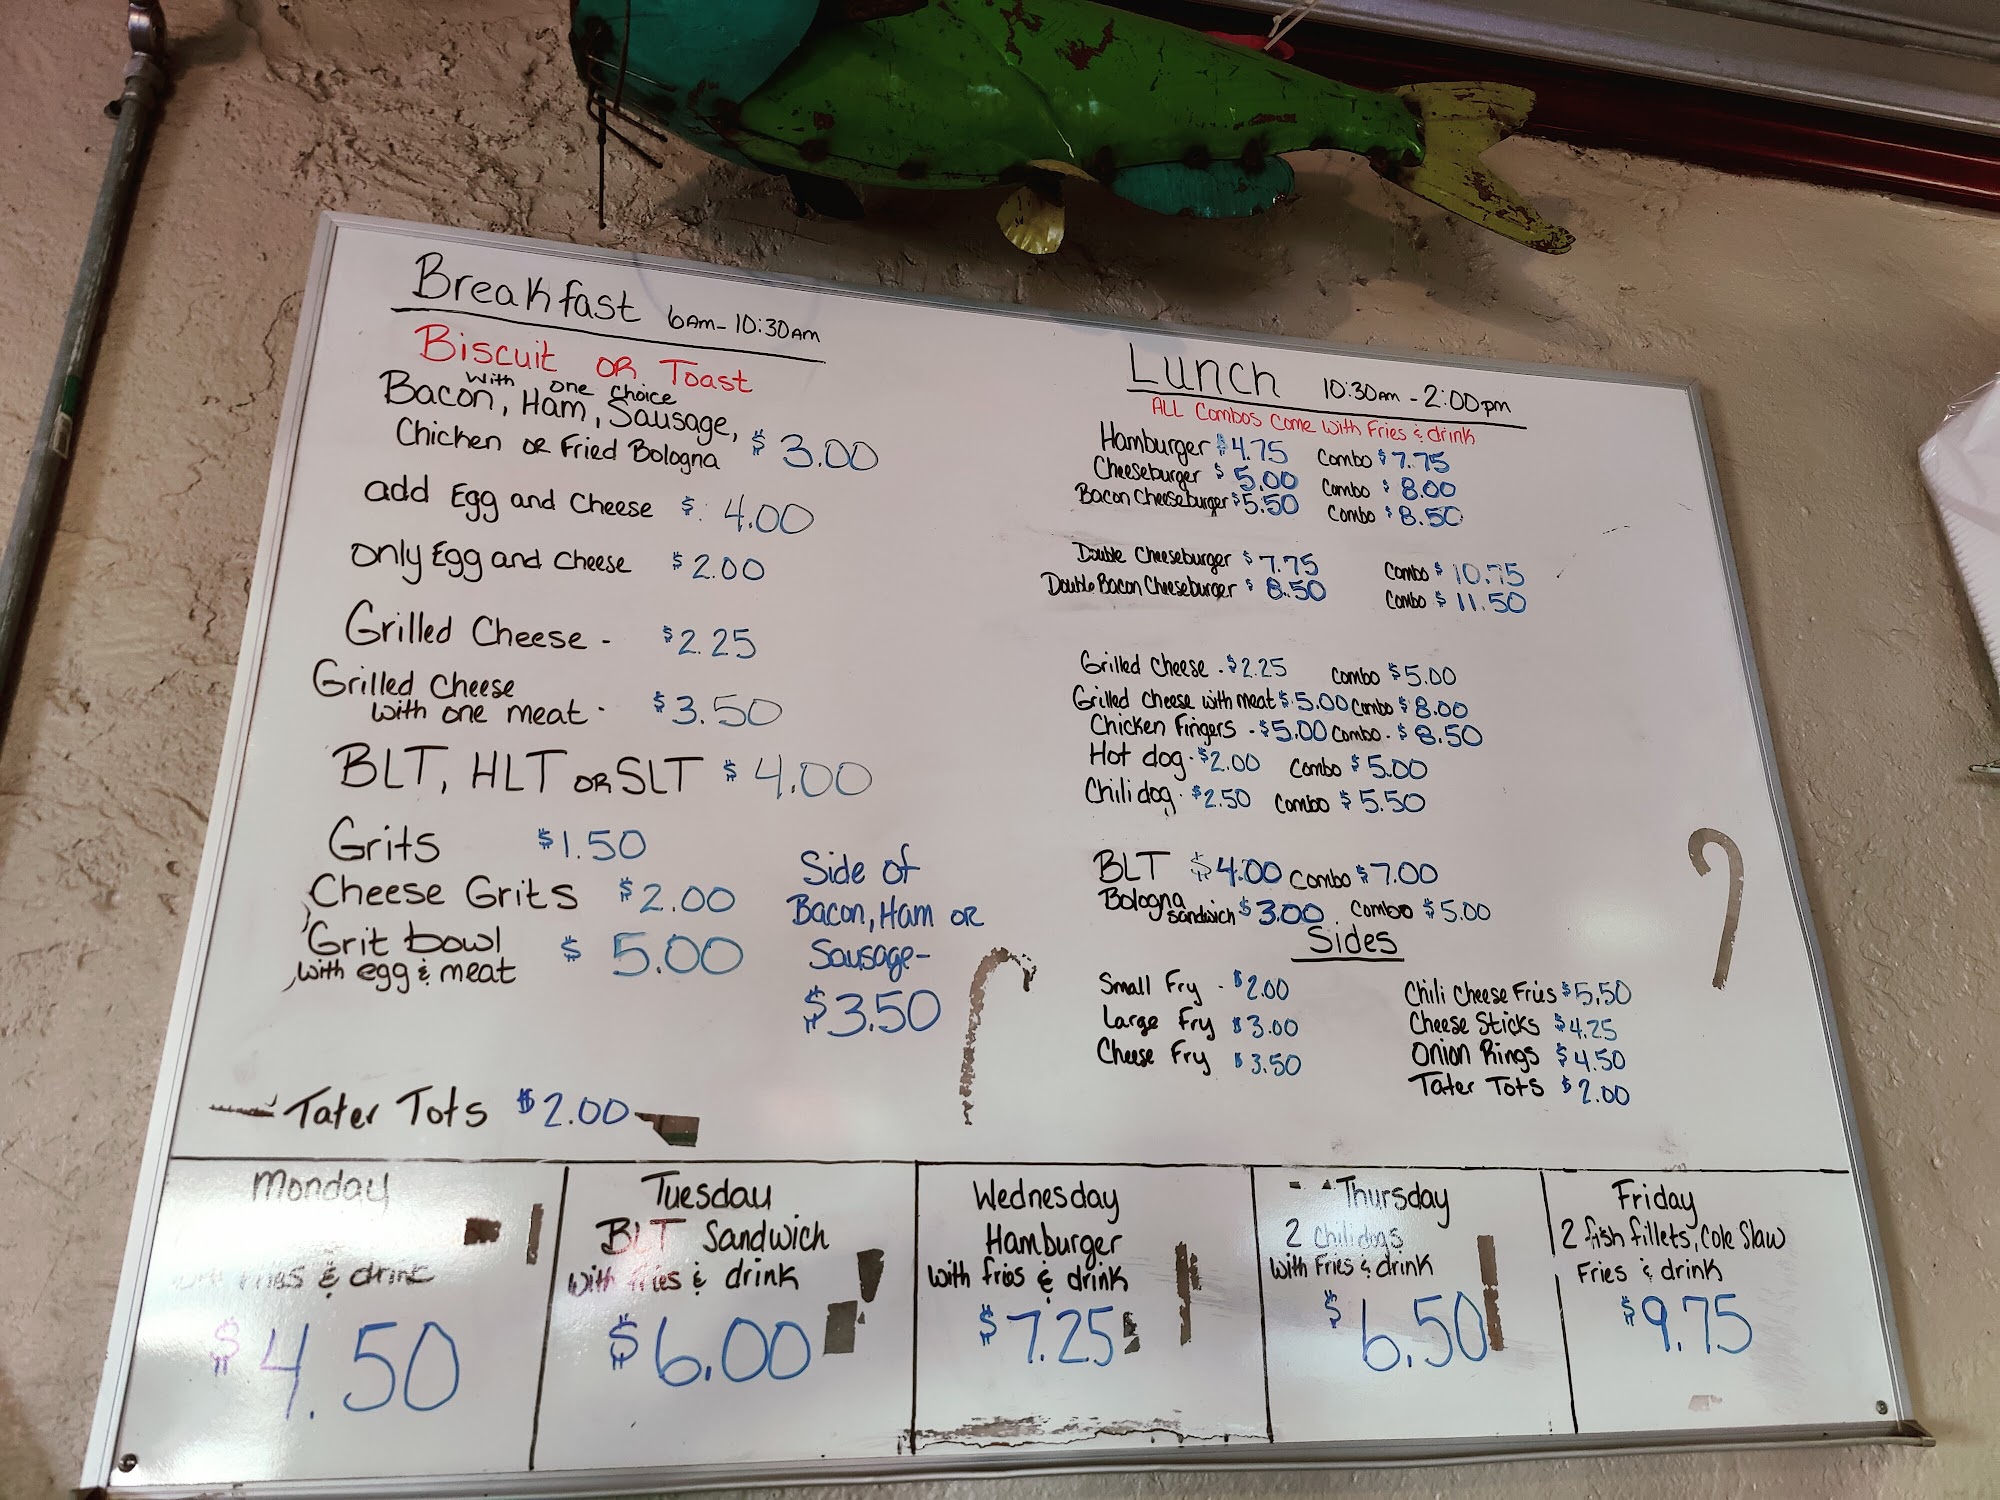 Breakfast 6AM-10:30AM
Biscuit OR Toast
with one choice
Bacon, Ham, Sausage,
Chicken or Fried Bologna $3.00
add Egg and Cheese $.4.00
only Egg and Cheese $2.00
Grilled Cheese - $2.25
Grilled Cheese
with one meat - $3.50
BLT, HLT OR SLT $4.00
Grits $1.50
Cheese Grits $2.00
Grit bowl
with egg & meat $5.00
Side of
Bacon, Ham OR
Sausage-
$3.50
Tater Tots $2.00
Lunch 10:30AM - 2:00pm
ALL Combos Come with Fries & drink
Hamburger $4.75 Combo $7.75
Cheeseburger $5.00 Combo $8.00
Bacon Cheeseburger $5.50 Combo $8.50
Double Cheeseburger $7.75 Combo $10.75
Double Bacon Cheeseburger $8.50 Combo $11.50
Grilled Cheese - $2.25 Combo $5.00
Grilled Cheese with meat $.5.00 Combo $8.00
Chicken Fingers - $5.00 Combo - $8.50
Hot dog - $2.00 Combo $5.00
Chili dog - $2.50 Combo $5.50
BLT $4.00 Combo $7.00
Bologna
sandwich $3.00 Combo $5.00
Sides
Small Fry - $2.00
Large Fry $3.00
Cheese Fry $3.50
Chili Cheese Fries $5.50
Cheese Sticks $4.25
Onion Rings $4.50
Tater Tots $2.00
Monday
Fries & drink
$4.50
Tuesday
BLT Sandwich
with fries & drink
$6.00
Wednesday
Hamburger
with fries & drink
$7.25
Thursday
2 Chilidogs
with Fries & drink
$6.50
Friday
2 fish fillets, Cole Slaw
Fries & drink
$9.75